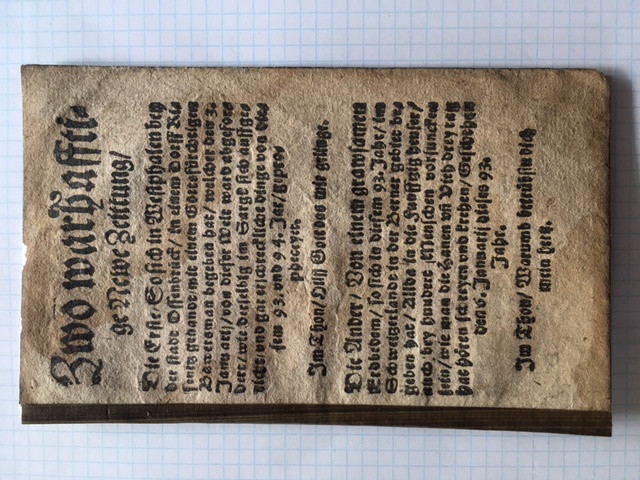 Zwo warhaffti⸗
ge Newe Zeittung/
Die Erste/ So sich in Westphalen bey
der stadt Ossenbrück/ in einem Dorff
seritz genandt/ mit einem Gottsfürchtigen
Bawersman begeben hat/ welcher den 3.
Januarij/ von dieser Welt ward abgefor⸗
dert/ wie derselbig im Sarge sich auffge⸗
richt/ und gar erschreckliche dinge von die⸗
sem 93. und 94. Jar/ gepro⸗
pheceyet.
Im Thon/ Hilff Gott das mir gelinge.
Die Ander/ Von einem grawsamen
Erdbedem/ so sich in diesem 92. Jahr/ im
Schweitzerlandt in der Berner gebiet be⸗
geben hat/ Allda in die fünfftzig heuser/
auch bey hundert Menschen versuncken
sein/ wie man die Hanen uñ Veih drey tag
hat hören schreyen und krehen/ Geschehen
den 6. Januarij dieses 93.
Jahr.
Im Thon/ Warumb betrübstu dich
mein hertz.